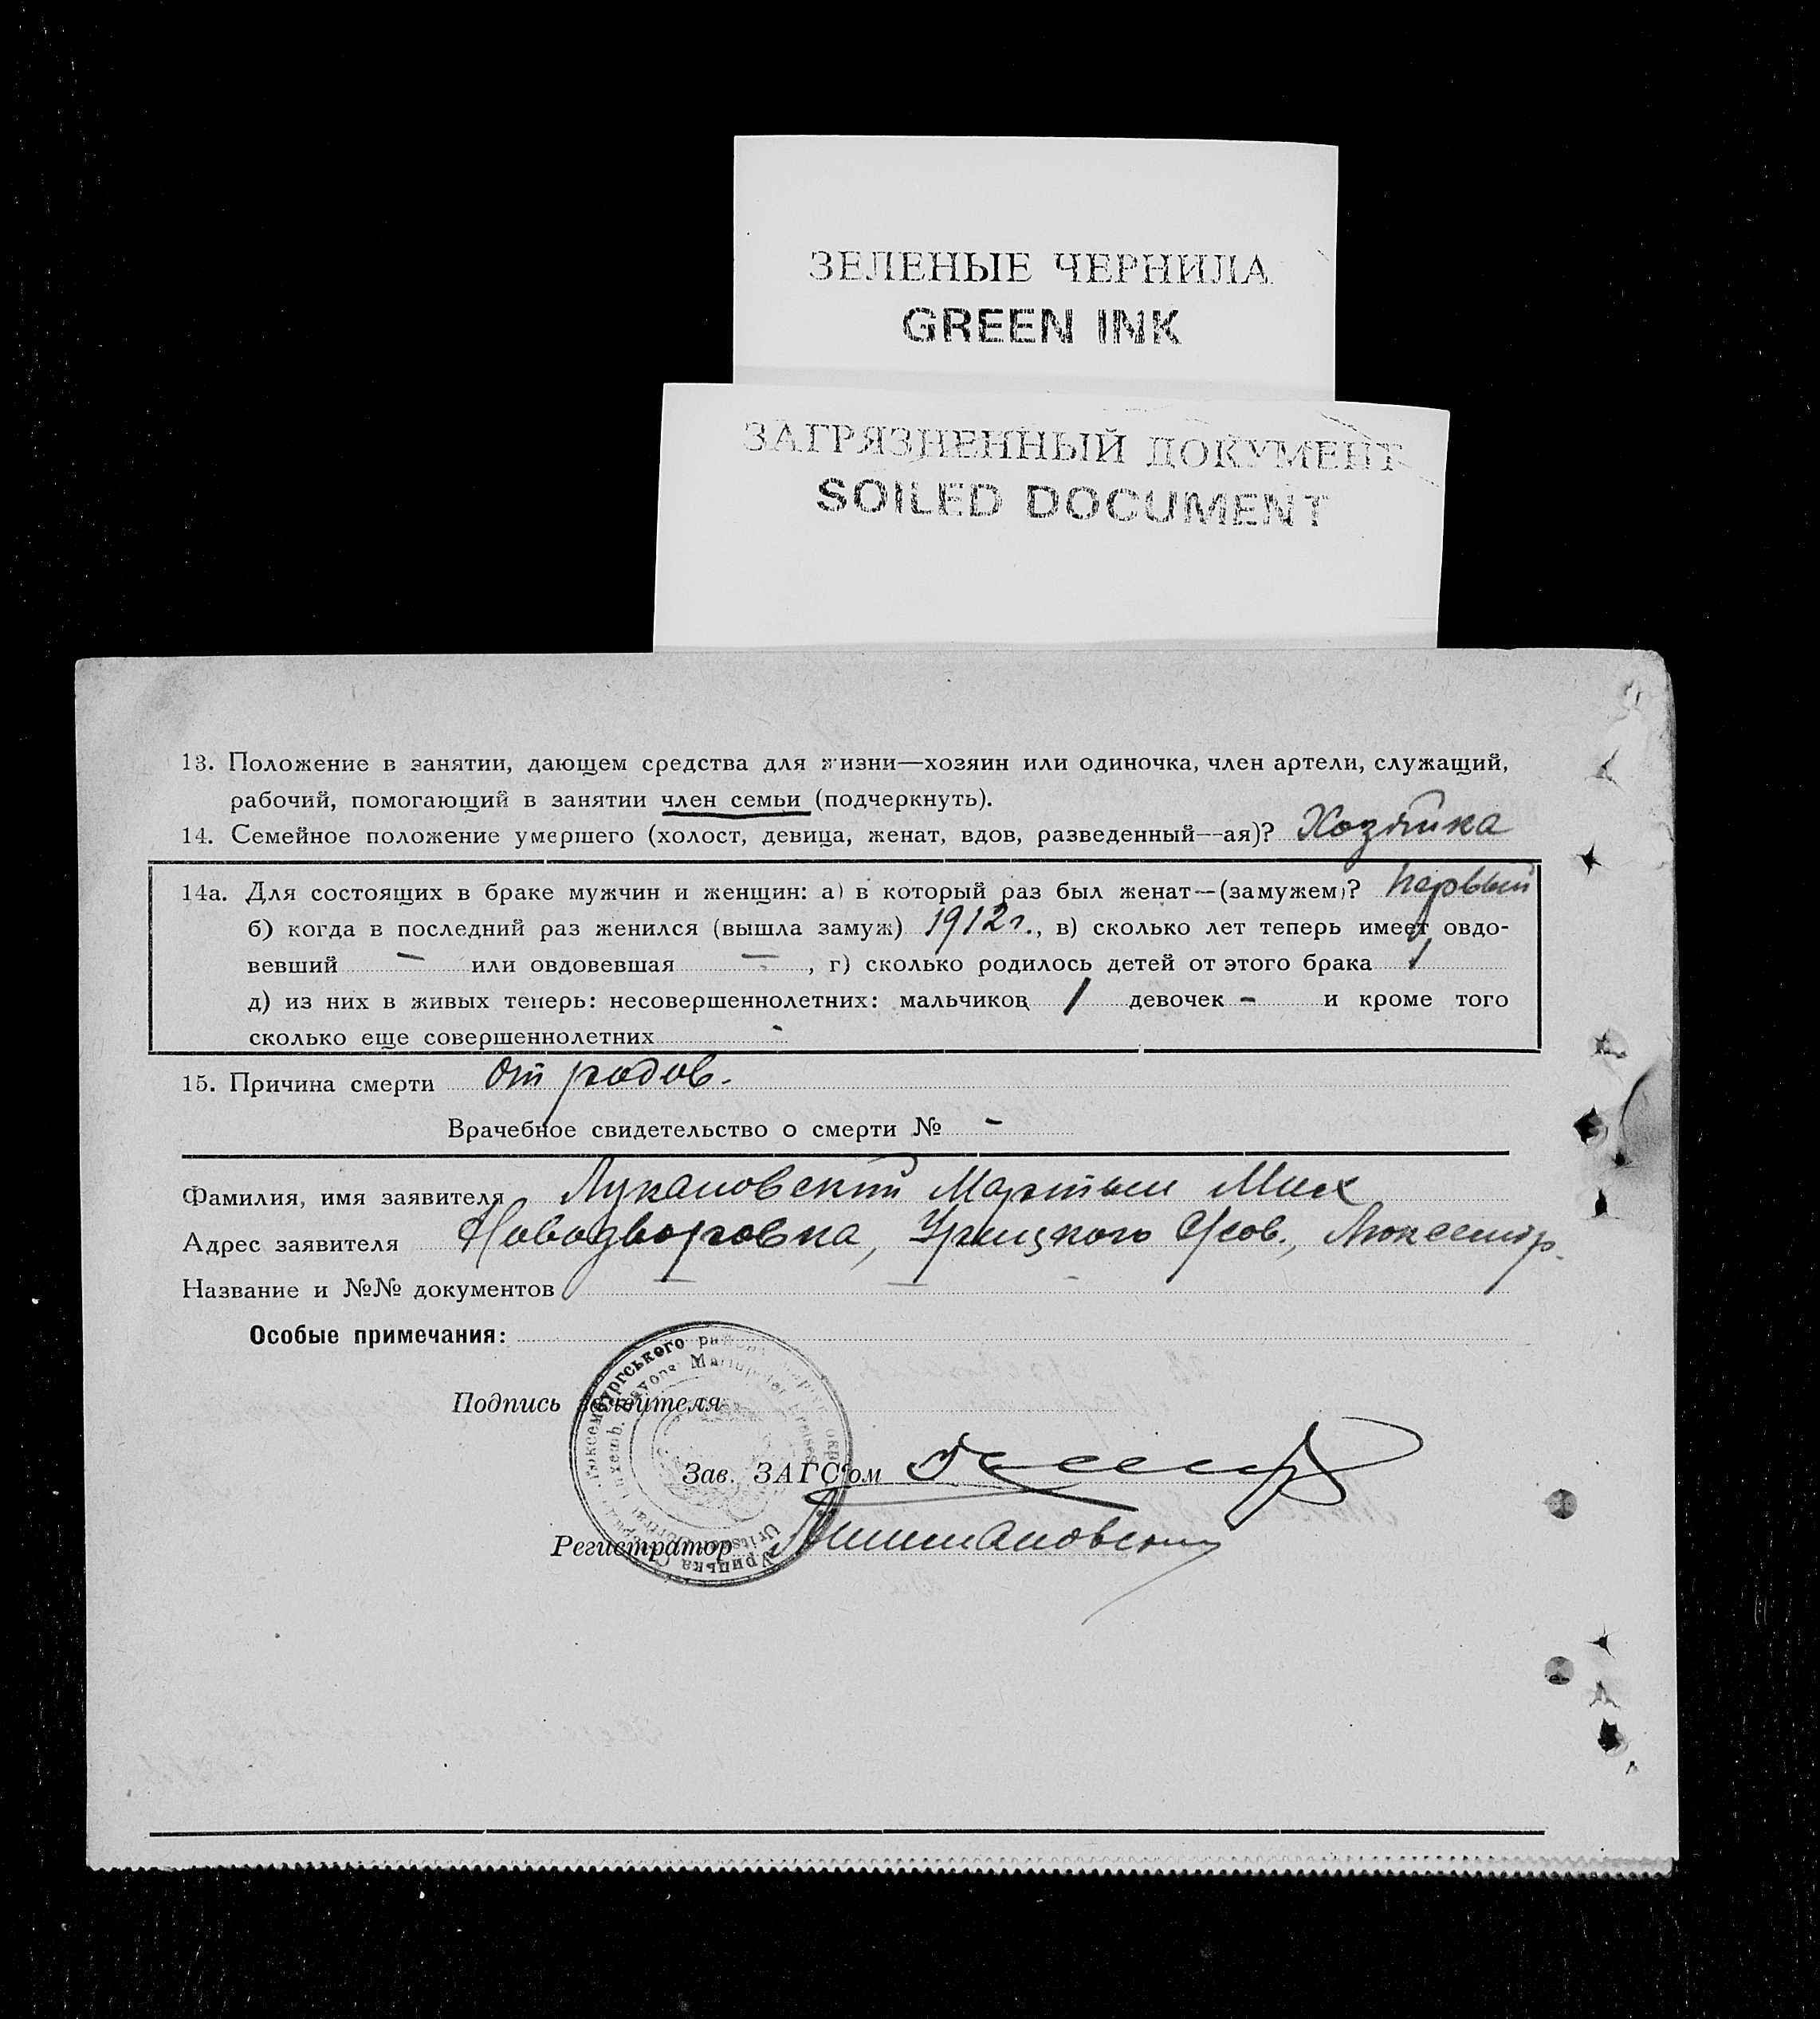 ЗЕЛЕНЫЕ ЧЕРНИЛА
GREEN INK
ЗАГРЯЗНЕННЫЙ ДОКУМЕНТ
SOILED DOCUMENT
13. Положение в занятии, дающем средства для жизни—хозяин или одиночка, член артели, служащий,
рабочий, помогающий в занятии член семьи (подчеркнуть).
14. Семейное положение умершего (холост, девица, женат, вдов, разведенный—ая)? Хозяйка
14а. Для состоящих в браке мужчин и женщин: а) в который раз был женат—(замужем)? первый
б) когда в последний раз женился (вышла замуж) 1912 г., в) сколько лет теперь имеет овдо-
вевший — или овдовевшая —, г) сколько родилось детей от этого брака 1
д) из них в живых теперь: несовершеннолетних: мальчиков 1 девочек - и кроме того
сколько еще совершеннолетних -
15. Причина смерти от родов.
Врачебное свидетельство о смерти № -
Фамилия, имя заявителя Лукановский Мартын Мих
Адрес заявителя Новодворовка, Урицкого С/сов., Люксембр.
Название и №№ документов
Особые примечания:
Подпись заявителя
Зав. ЗАГС'ом
Регистратор
Люксембургського району
Rayons Mariupoler Kreises
Урицька